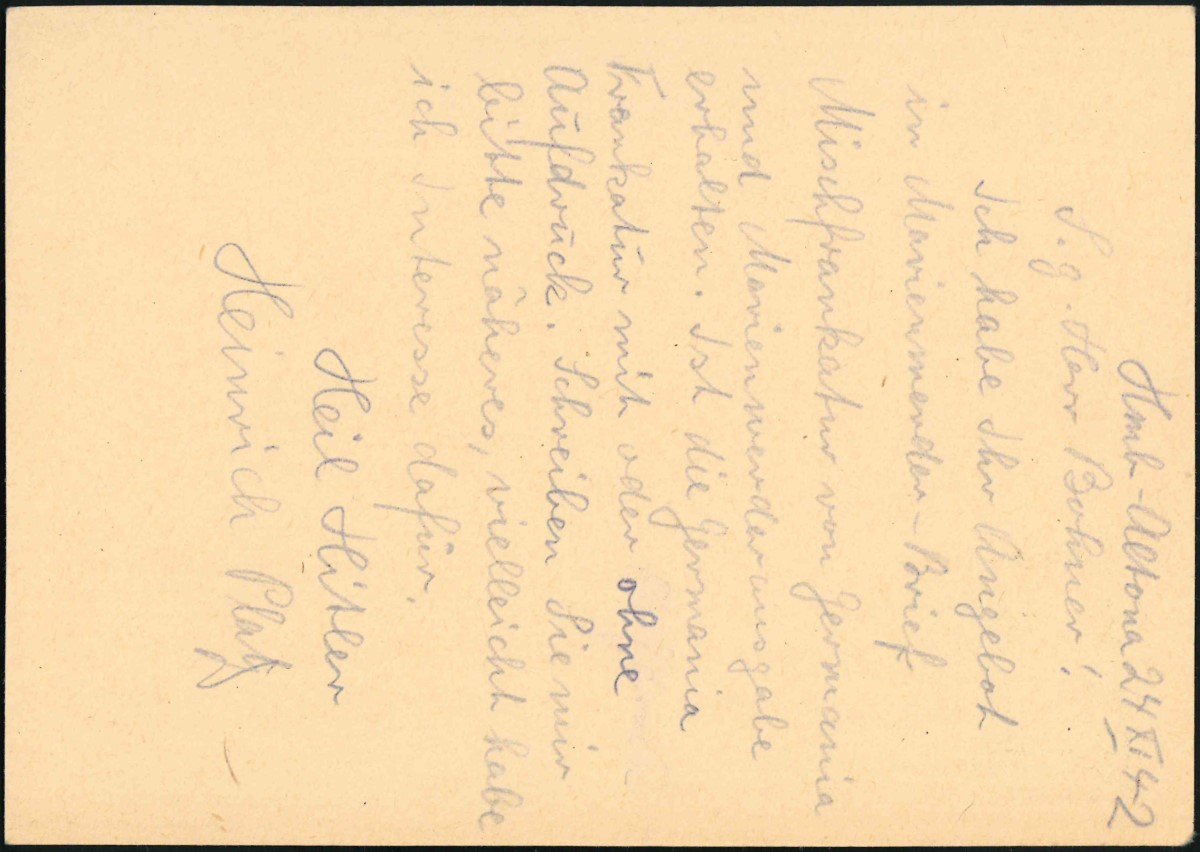 Hmb-Altona 24 XI 42
S. g. Herr Bohner!
Ich habe Ihr Angebot
in Marienwerder-Brief
Mischfrankatur von Germania
und Marienwerderausgabe
erhalten. Ist die Germania
Frankatur mit oder ohne
Aufdruck. Schreiben Sie mir
bitte näheres, vielleicht habe
ich Interesse dafür.
Heil Hitler
Heinrich Platz